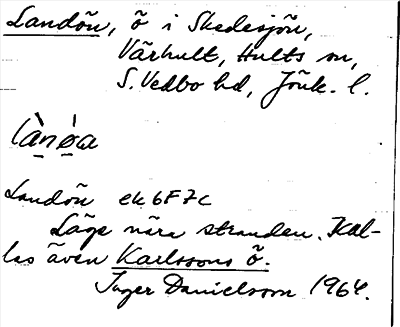 Landön, ö i Skedesjön,
Värhult, Hults sn,
S. Vedbo hd, Jönk. l.
làn̠ø̠a
Landön ek 6F7c
Läge nära stranden. Kal-
las även Karlssons ö.
Inger Danielsson 1964.